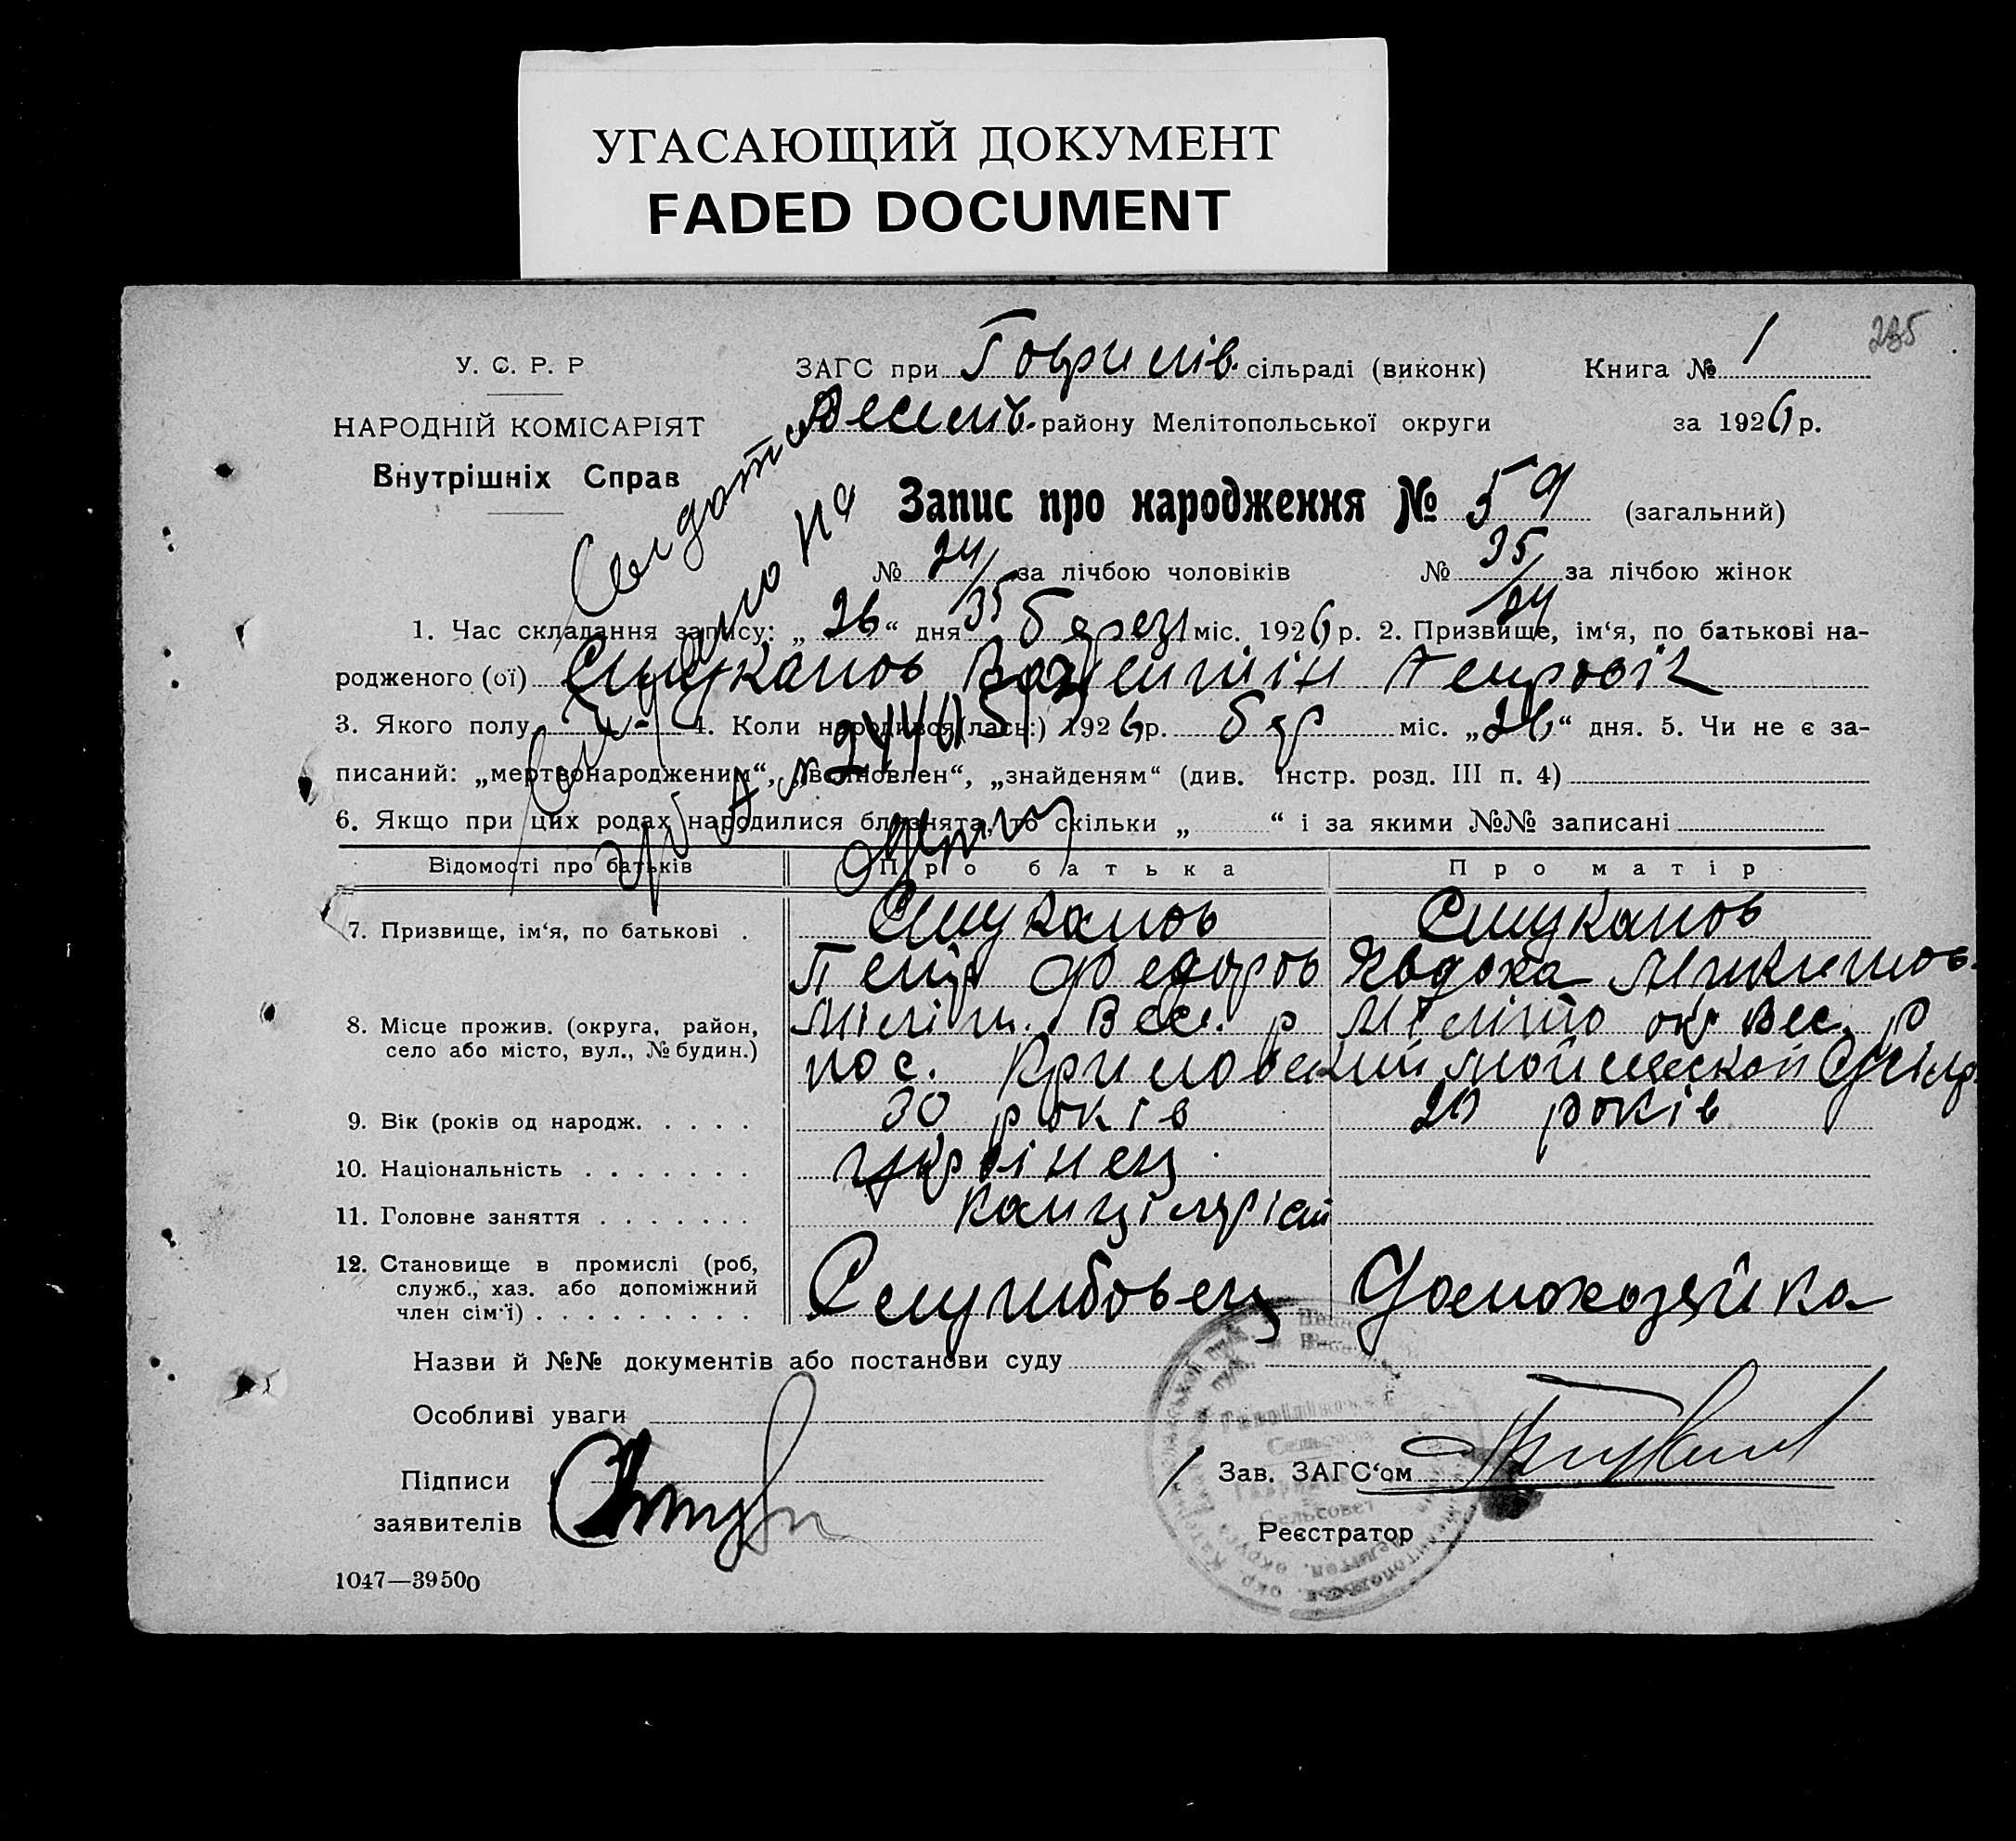 УГАСАЮЩИЙ ДОКУМЕНТ
FADED DOCUMENT
235
У. С. Р. Р
НАРОДНІЙ КОМІСАРІЯТ
Внутрішніх Справ
ЗАГС при Гаврилів. сільраді (виконк)
Книга № 1
Весел. району Мелітопольської округи
за 1926 р.
Запис про народження № 59 (загальний)
№ 24/35 за лічбою чоловіків № 35/24 за лічбою жінок
1. Час складання запису: „ 26 “ дня берез міс. 1926 р. 2. Призвище, ім‘я, по батькові на-
родженого (ої) Стуканов Валентін Петровіч
3. Якого полу 4. Коли народився(лась:) 1926 р. бер міс. „26“ дня. 5. Чи не є за-
писаний: „мертвонародженим“, „встановлен“, „знайденям“ (див. інстр. розд. III п. 4)
6. Якщо при цих родах народилися близнята, то скільки „ “ і за якими №№ записані
Відомості про батьків Про батька Про матір
7. Призвище, ім‘я, по батькові . Стуканов Стуканов
Петр Федоров Явдоха Микитов.
8. Місце прожив. (округа, район, Меліт. Вес. р Меліто окр Вес. р
село або місто, вул., № будин.) пос. Криловський
9. Вік (років од народж. . . . . 30 років років
10. Національність . . . . . . . Українец
11. Головне заняття . . . . . . . канціляріст
12. Становище в промислі (роб,
служб., хаз. або допоміжний
член сім‘ї) . . . . . . . . . Службовец Домохозяйка
Назви й №№ документів або постанови суду
Особливі уваги
Підписи
заявителів
Зав. ЗАГС‘ом
Реєстратор
1047—39500